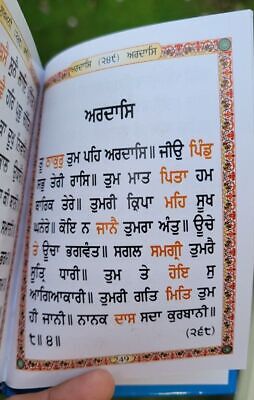 ਅਰਦਾਸਿ (੨੪੯) ਅਰਦਾਸਿ
ਅਰਦਾਸਿ
ਤੂ ਠਾਕੁਰੁ ਤੁਮ ਪਹਿ ਅਰਦਾਸਿ॥ ਜੀਉ ਪਿੰਡੁ
ਸਭੁ ਤੇਰੀ ਰਾਸਿ॥ ਤੁਮ ਮਾਤ ਪਿਤਾ ਹਮ
ਬਾਰਿਕ ਤੇਰੇ॥ ਤੁਮਰੀ ਕ੍ਰਿਪਾ ਮਹਿ ਸੂਖ
ਘਨੇਰੇ॥ ਕੋਇ ਨ ਜਾਨੈ ਤੁਮਰਾ ਅੰਤੁ॥ ਊਚੇ
ਤੇ ਊਚਾ ਭਗਵੰਤ॥ ਸਗਲ ਸਮਗ੍ਰੀ ਤੁਮਰੈ
ਸੂਤ੍ਰਿ ਧਾਰੀ॥ ਤੁਮ ਤੇ ਹੋਇ ਸੁ
ਆਗਿਆਕਾਰੀ॥ ਤੁਮਰੀ ਗਤਿ ਮਿਤਿ ਤੁਮ
ਹੀ ਜਾਨੀ॥ ਨਾਨਕ ਦਾਸ ਸਦਾ ਕੁਰਬਾਨੀ॥
੮॥੪॥ (੨੬੯)
249